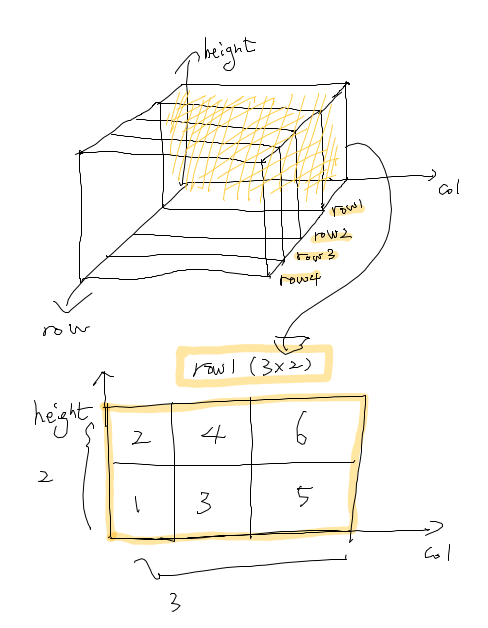 height
col
row1
row2
row3
row4
row
row1 (3×2)
height
2 4 6
2
1 3 5
col
3